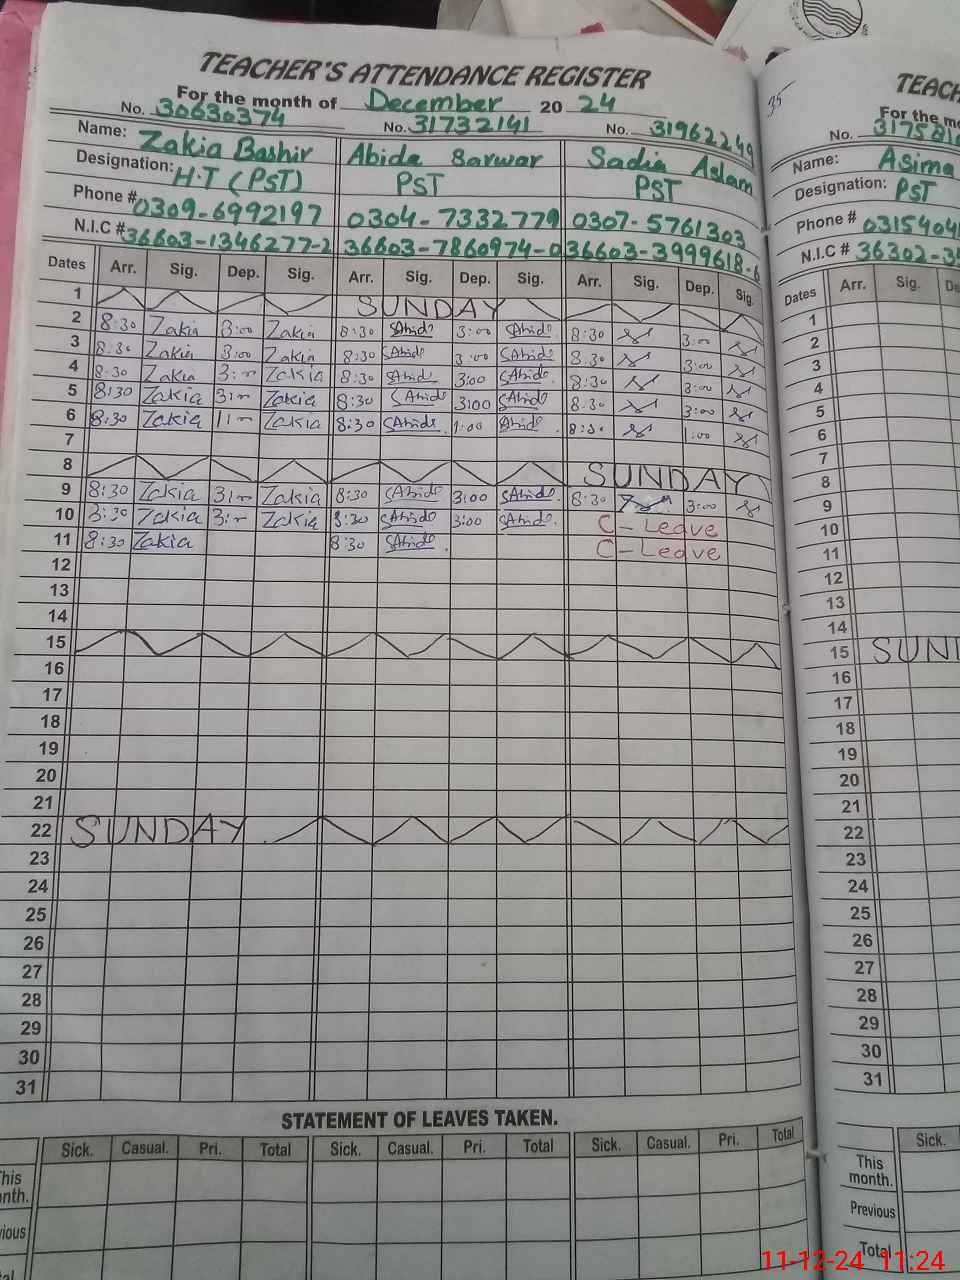 TEACHER'S ATTENDANCE REGISTER
For the month of December 20 24
No. 30630374 No. 31732141 No. 31962249
Name: Zakia Bashir Abida Sarwar Sadia Aslam
Designation: H.T (PST) PST PST
Phone # 0309-6992197 0304-7332779 0307-5761303
N.I.C # 36603-1346277-2 36603-7860974-0 36603-3999618-6
Dates Arr. Sig. Dep. Sig. Arr. Sig. Dep. Sig. Arr. Sig. Dep. Sig.
1 SUNDAY
2 8:30 Zakia 3:00 Zakia 8:30 SAbida 3:00 SAbida 8:30 3:00
3 8:30 Zakia 3:00 Zakia 8:30 SAbida 3:00 SAbida 8:30 3:00
4 8:30 Zakia 3:00 Zakia 8:30 SAbida 3:00 SAbida 8:30 3:00
5 8:30 Zakia 3:00 Zakia 8:30 SAbida 3:00 SAbida 8:30 3:00
6 8:30 Zakia 1:00 Zakia 8:30 SAbida 1:00 SAbida 8:30 1:00
7
8 SUNDAY
9 8:30 Zakia 3:00 Zakia 8:30 SAbida 3:00 SAbida 8:30 3:00
10 8:30 Zakia 3:00 Zakia 8:30 SAbida 3:00 SAbida C-Leave
11 8:30 Zakia 8:30 SAbida C-Leave
12
13
14
15
16
17
18
19
20
21
22 SUNDAY
23
24
25
26
27
28
29
30
31
STATEMENT OF LEAVES TAKEN.
Sick. Casual. Pri. Total Sick. Casual. Pri. Total Sick. Casual. Pri. Total
This
month.
35
For the
No.
Name: Asima
Designation: PST
Phone #
N.I.C # 36302
Dates Arr. Sig.
1
2
3
4
5
6
7
8
9
10
11
12
13
14
15
16
17
18
19
20
21
22
23
24
25
26
27
28
29
30
31
Sick.
This
month.
Previous
Total
11-12-24 11:24